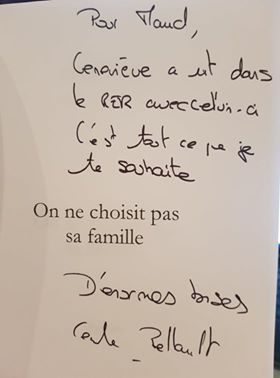 Pour Maud,
Geneviève a rit dans
le RER avec celui-ci
C'est tout ce que je
te souhaite
On ne choisit pas
sa famille
D'énormes bises